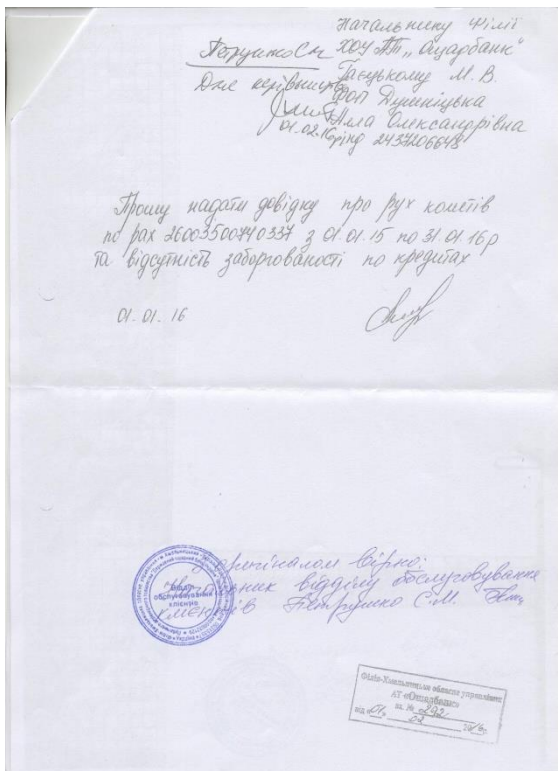 Начальнику Філії
ХОУ АТ „Ощадбанк"
Гаєцькому М. В.
ФОП Душніцька
Алла Олександрівна
2437206648
Петрушко С.М.
01.02.16
Прошу надати довідку про рух коштів
по рах 26003500740337 з 01.01.15 по 31.01.16р
та відсутність заборгованості по кредитах
01.01.16
З оригіналом вірно:
Начальник відділу обслуговування
клієнтів Петрушко С.М.
Відділ
обслуговування
клієнтів
Філія-Хмельницьке обласне управління
АТ «Ощадбанк»
вх. № 292
від „01" 02 2016р